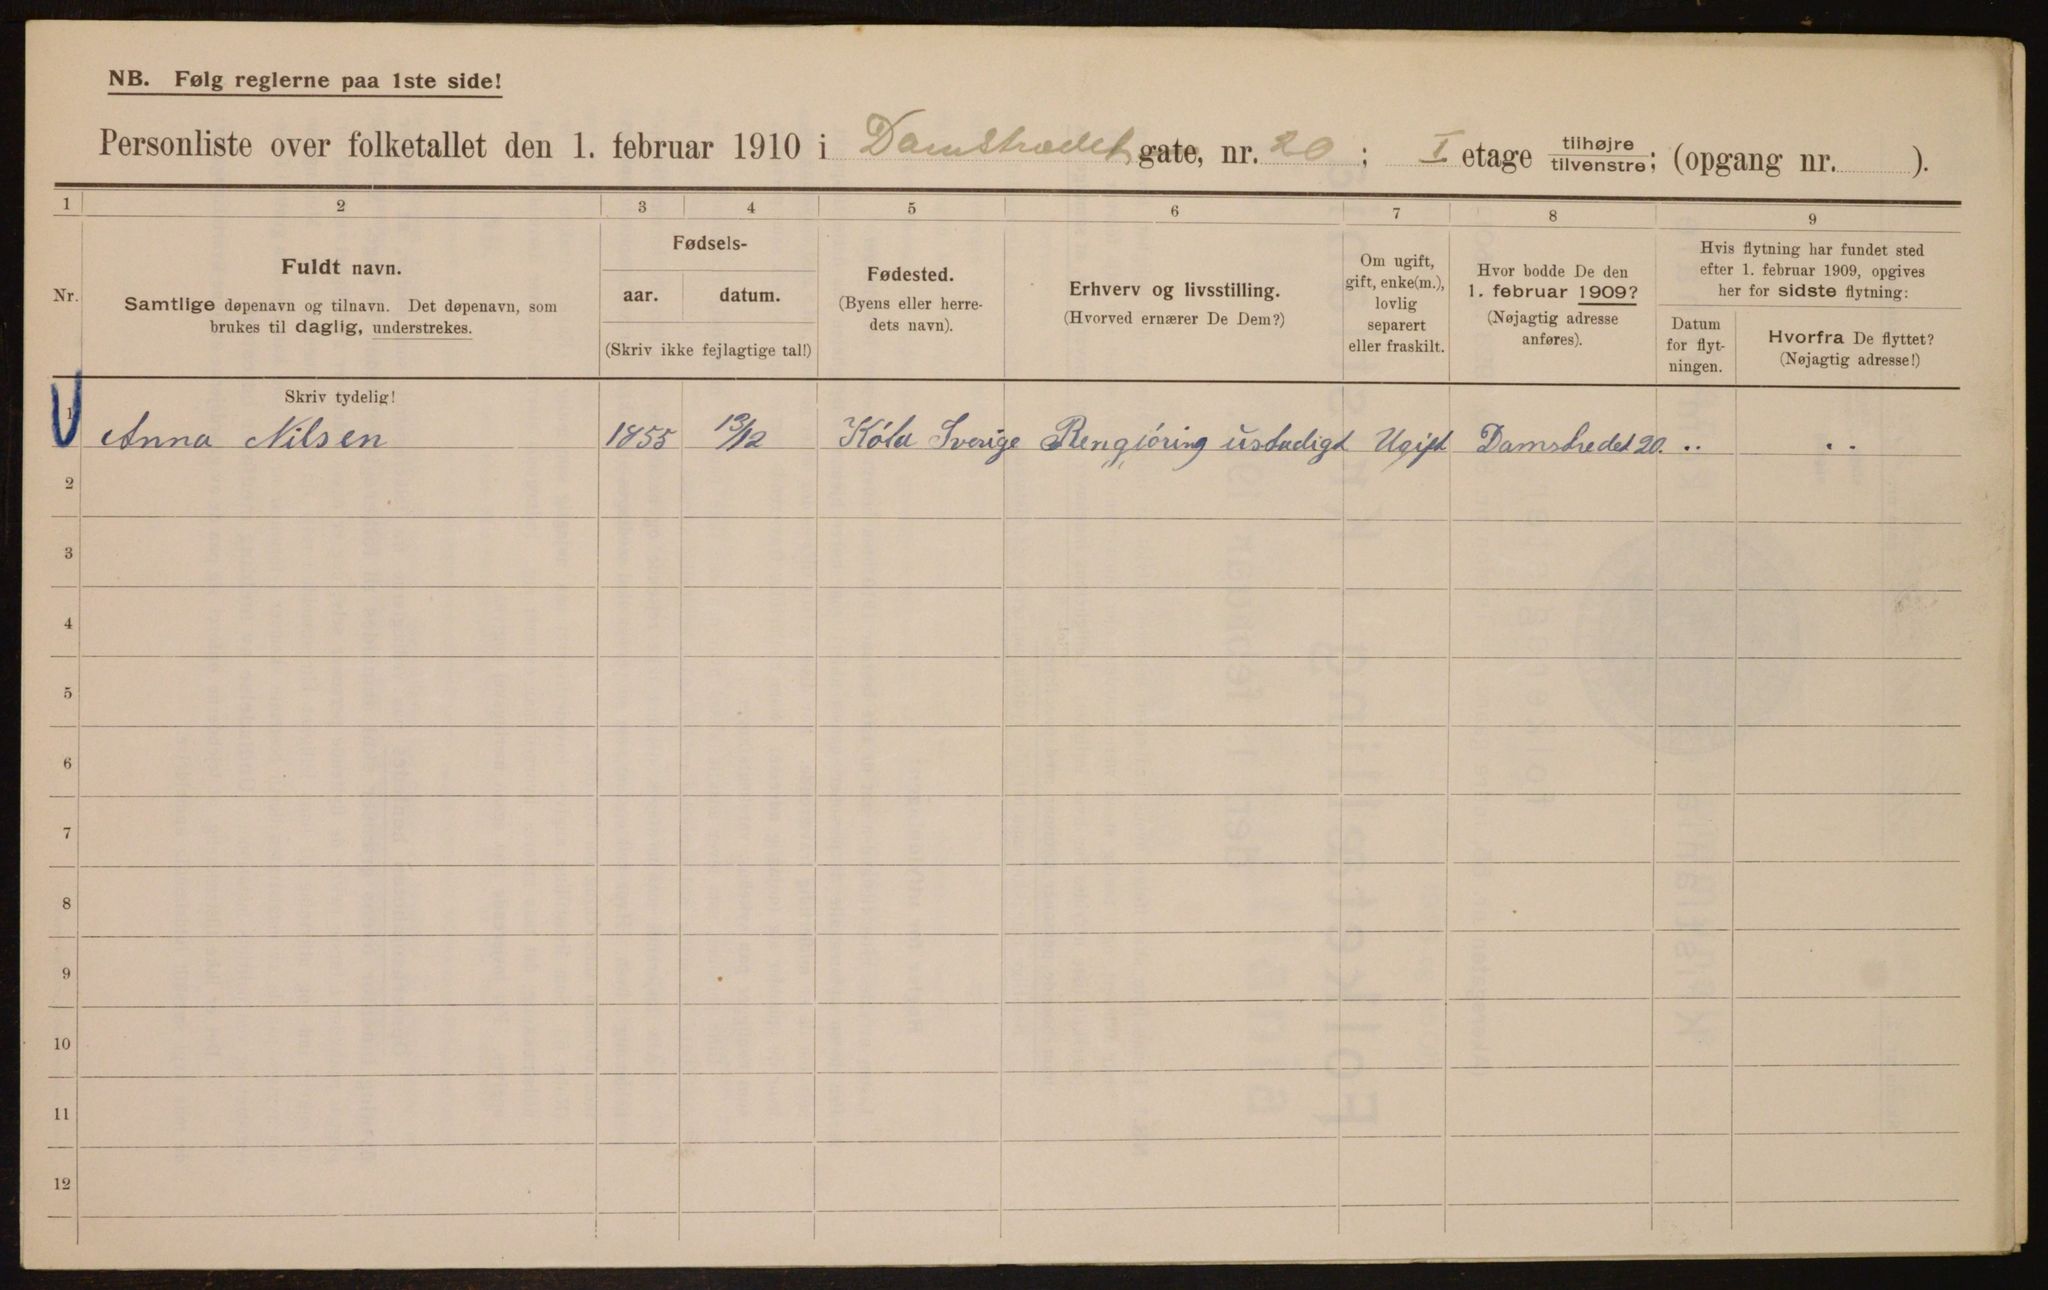 NB. Følg reglerne paa 1ste side!
Personliste over folketallet den 1. februar 1910 i Damstrædet gate, nr. 20 ; I etage tilhøjre tilvenstre; (opgang nr. ).
1 2 3 4 5 6 7 8 9
Nr.
Fuldt navn.
Samtlige døpenavn og tilnavn. Det døpenavn, som
brukes til daglig, understrekes.
Fødsels-
aar. datum.
(Skriv ikke fejlagtige tal!)
Fødested.
(Byens eller herre-
dets navn).
Erhverv og livsstilling.
(Hvorved ernærer De Dem?)
Om ugift,
gift, enke(m.),
lovlig
separert
eller fraskilt.
Hvor bodde De den
1. februar 1909?
(Nøjagtig adresse
anføres).
Hvis flytning har fundet sted
efter 1. februar 1909, opgives
her for sidste flytning:
Datum
for flyt-
ningen.
Hvorfra De flyttet?
(Nøjagtig adresse!)
Skriv tydelig!
1 Anna Nilsen 1855 13/12 Köla Sverige Rengiöring ustadigt Ugift Damstredet 20. .. ..
2
3
4
5
6
7
8
9
10
11
12